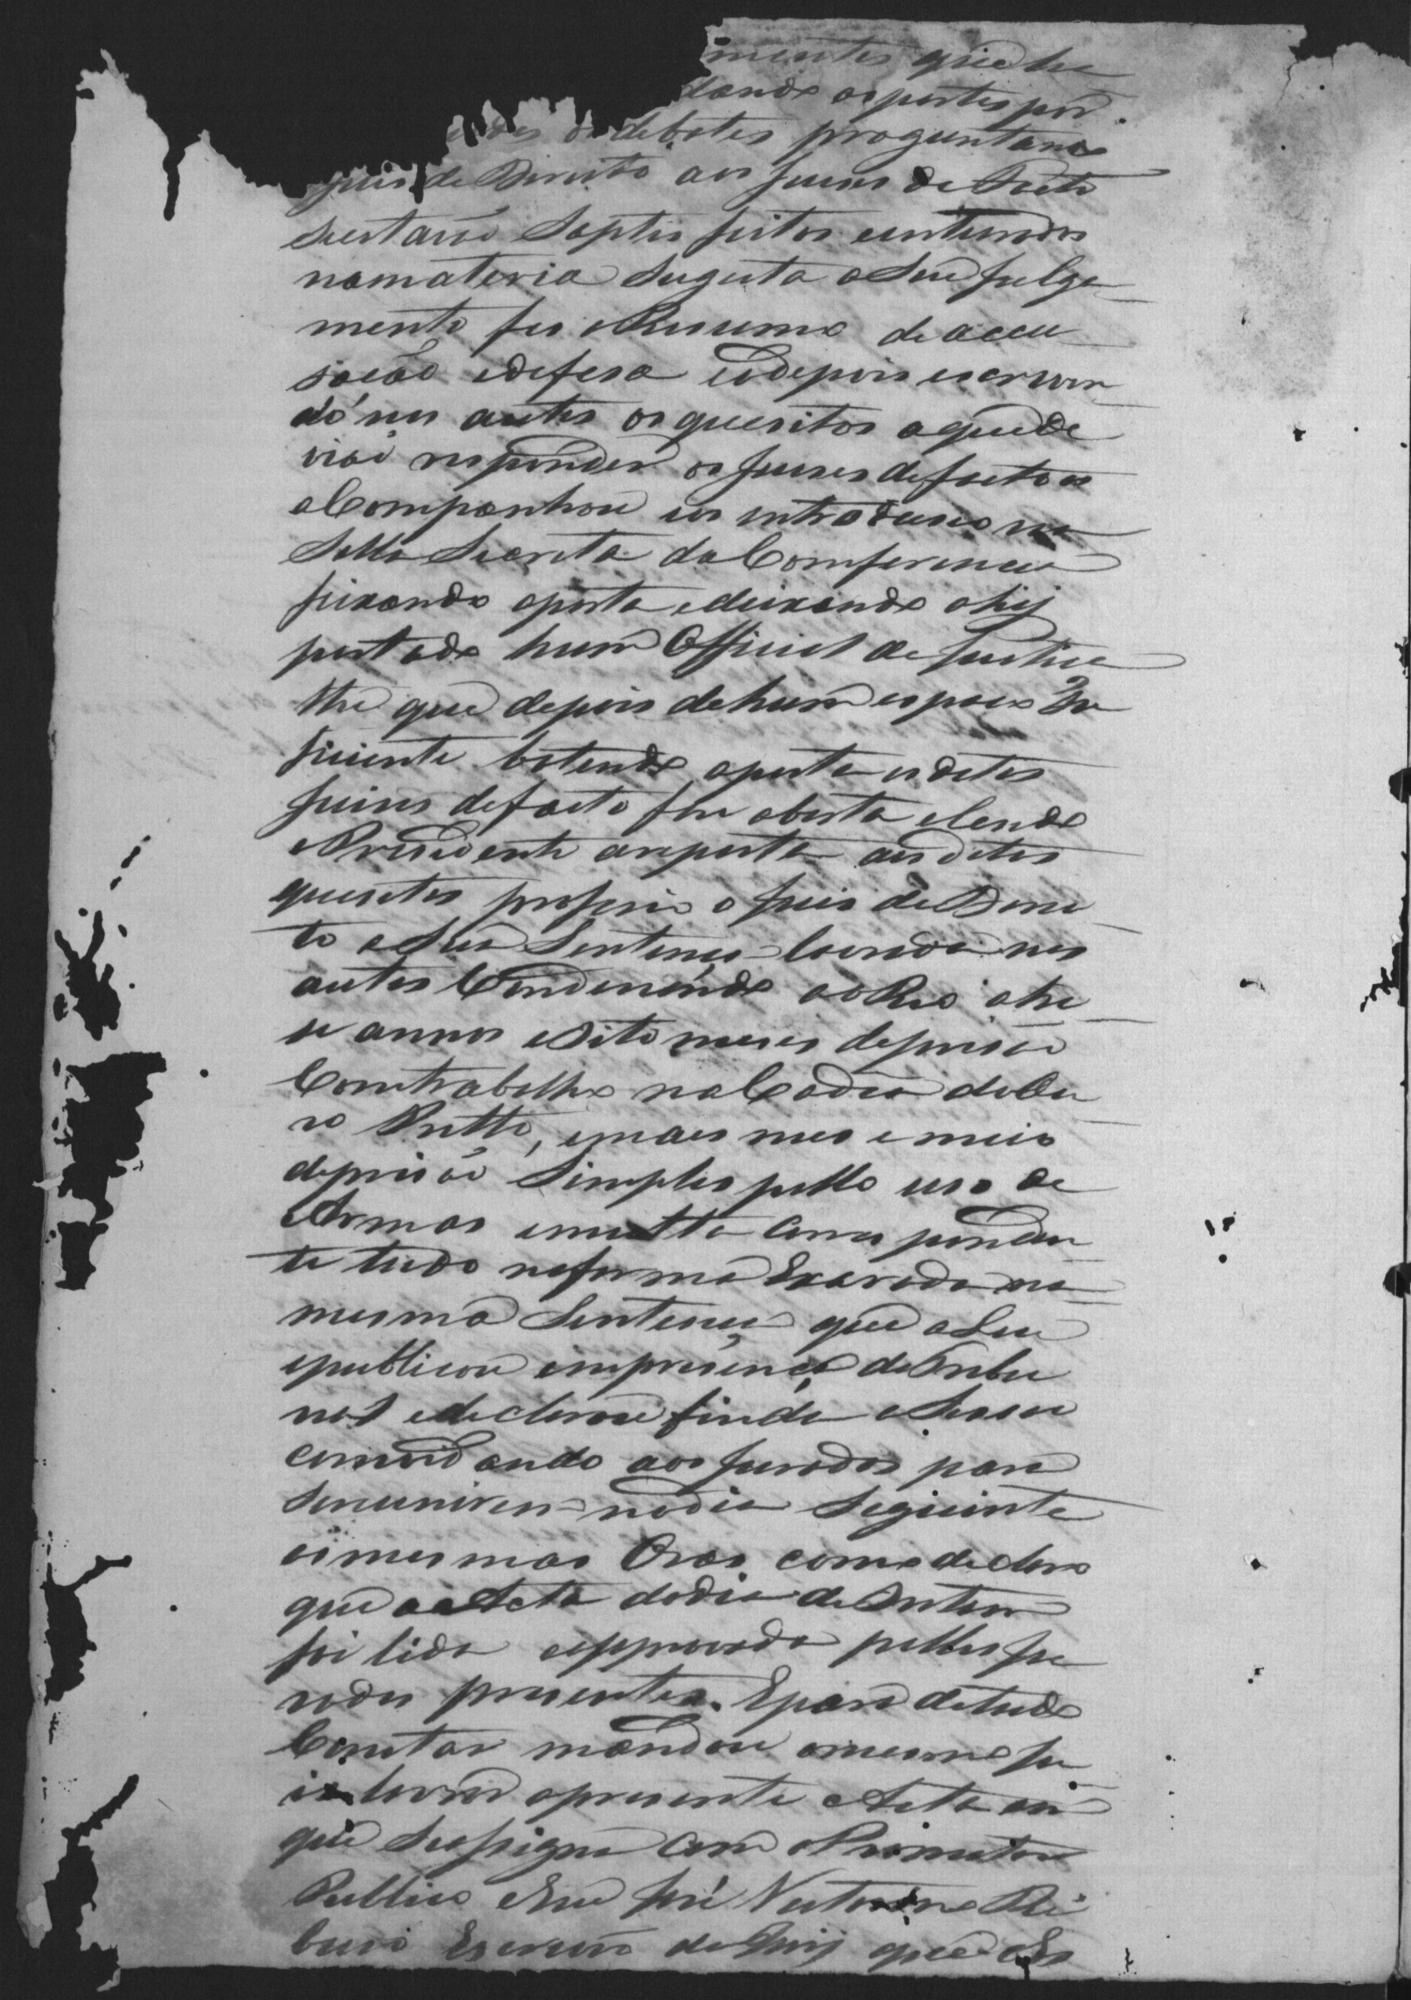 mentos que he
dando as partes por
os debates proguntando
Juis de Direito aos Juises de Facto
se estavaõ Saptis feitos e entendidos
na materia Sugeita a Seu Julga
mento fes o Resumo de accu
saçaõ e defesa e depois escreven
dó nos autos os quesitos a que de
viaõ responder os Juises de facto os
a Companhou e os introdusio na
Salla Secreta da Comferencia
feixando aporta e deixando ahij
postado hum Official de Justiça
the que depois de hum espaco Su
ficiente batendo aporta os ditos
Juises de facto foi aberta e lendo
o Presidente a resposta aos ditos
quesitos proferio o Juis de Direi
to a Sua Sentença lavrada nos
autos Condenando ao Reo a tre
se annos e Oito meses de prisaõ
Com trabalho na Cadea do Ou
ro Pretto, e mais mes e meio
de prisaõ Simples pello uso de
Armas e multa correspondẽ
te tudo na forma Exarada na
mesma Sentença que a Leu
e publicou em presença do Tribu
nal e declarou finda a Sessaõ
comvidando aos Jurados para
se reunirem no dia Seguinte
as mesmas Oras, como declaro
que a Acta do dia de Ontem
foi lida e approvada pellos Ju
rados presentes. E para de tudo
Constar mandou o mesmo Ju
is lavrar a presente Acta em
que Se assigna com o Promotor
Publico e Eu José Victorino Ri
beiro Escrivaõ do Jurij que a Es